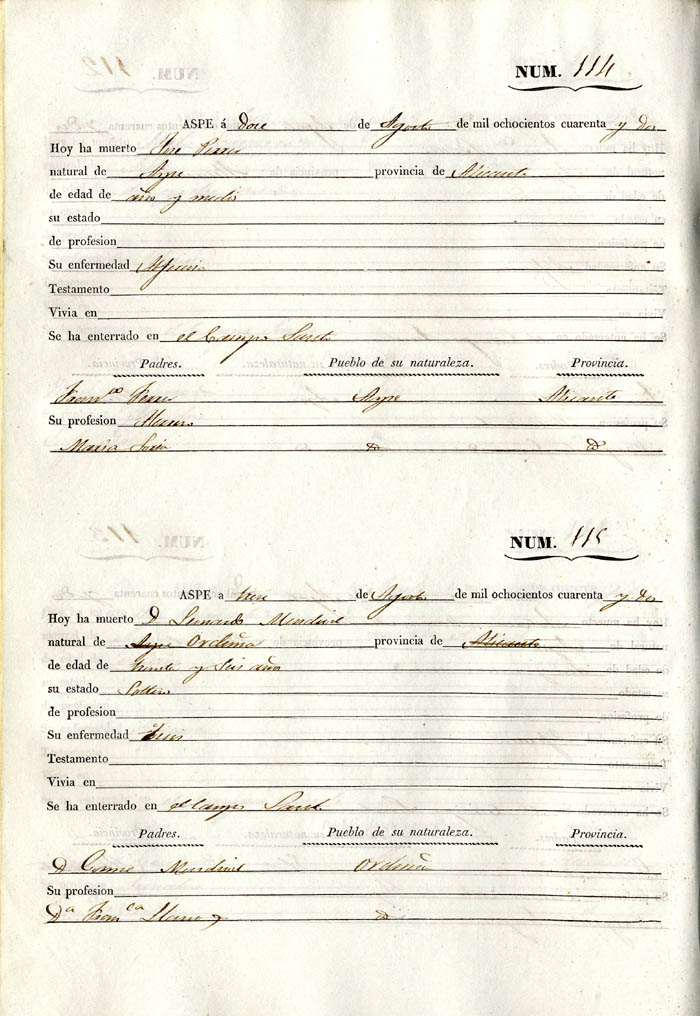 NUM. 114
ASPE á doce de Agosto de mil ochocientos cuarenta y dos
Hoy ha muerto Jose
natural de Aspe provincia de Alicante
de edad de año y medio
su estado
de profesion
Su enfermedad
Testamento
Vivia en
Se ha enterrado en el Campo Santo
Padres. Pueblo de su naturaleza. Provincia.
Fran.co Aspe Alicante
Su profesion
Maria Soria
NUM. 115
ASPE a trece de Agosto de mil ochocientos cuarenta y dos
Hoy ha muerto D Leonardo
natural de Aspe Orduña provincia de Alicante
de edad de treinta y seis años
su estado Soltero
de profesion
Su enfermedad Tisis
Testamento
Vivia en
Se ha enterrado en el Campo Santo
Padres. Pueblo de su naturaleza. Provincia.
D Cosme Orduña
Su profesion
Da Fran.ca